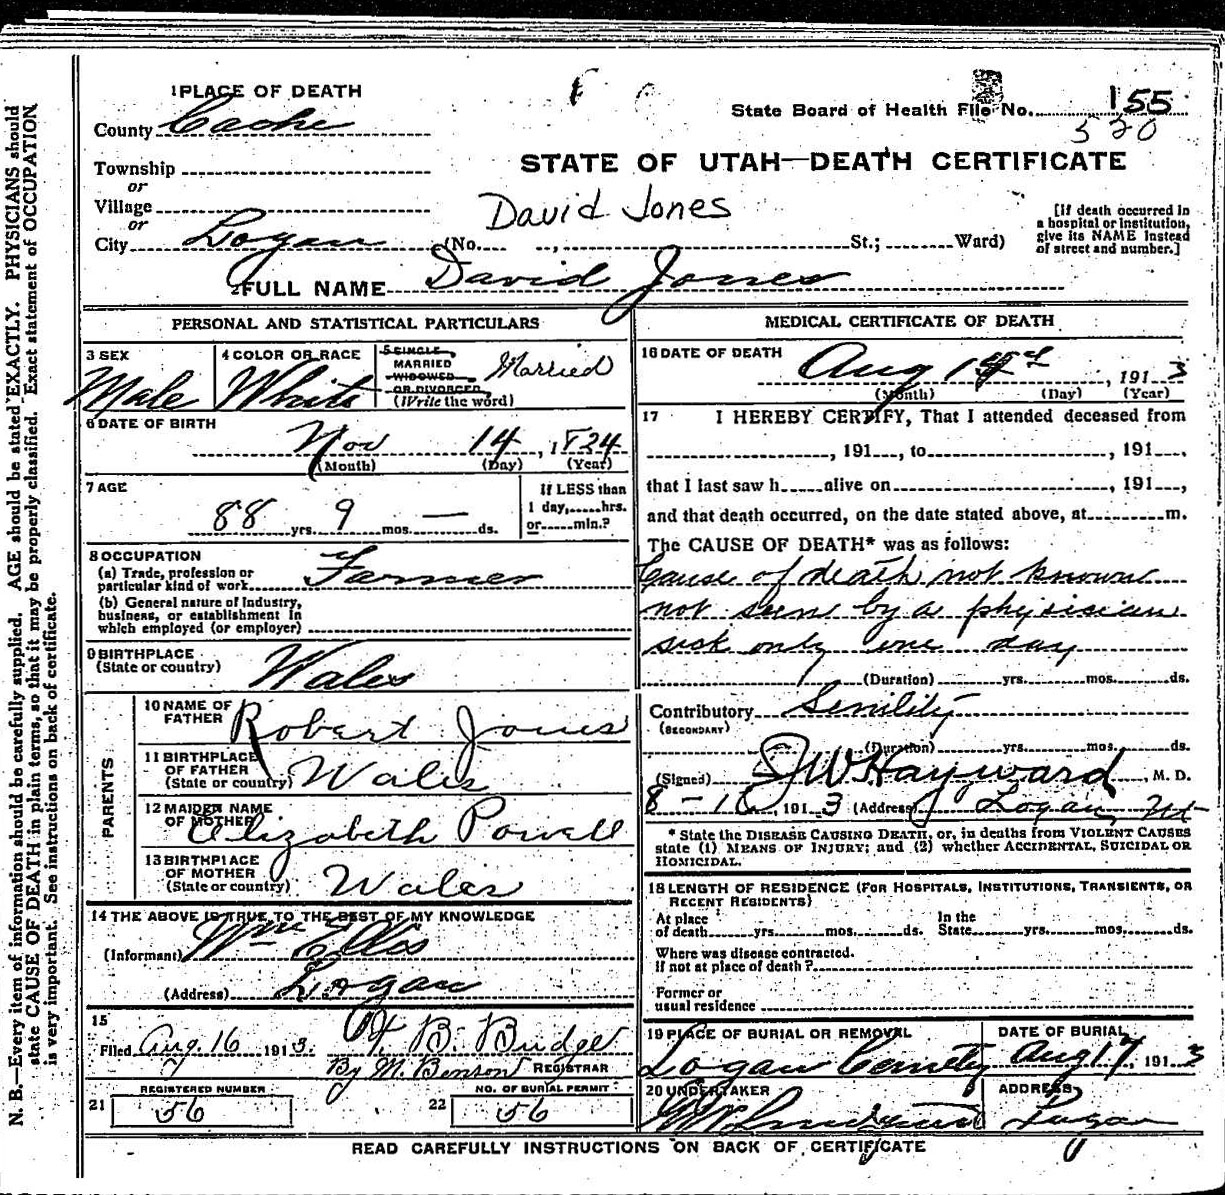 1 PLACE OF DEATH
County Cache
State Board of Health File No. 155
520
Township
or
Village
or
City Logan (No. , St.; Ward)
STATE OF UTAH—DEATH CERTIFICATE
David Jones
[If death occurred in
a hospital or institution,
give its NAME instead
of street and number.]
2 FULL NAME David Jones
PERSONAL AND STATISTICAL PARTICULARS
3 SEX
Male
4 COLOR OR RACE
White
5 SINGLE,
MARRIED
WIDOWED
OR DIVORCED,
(Write the word)
Married
6 DATE OF BIRTH
Nov 14, 1824
(Month) (Day) (Year)
7 AGE
88 yrs. 9 mos. — ds.
If LESS than
1 day, hrs.
or min.?
8 OCCUPATION
(a) Trade, profession or
particular kind of work Farmer
(b) General nature of Industry,
business, or establishment in
which employed (or employer)
9 BIRTHPLACE
(State or country) Wales
PARENTS
10 NAME OF
FATHER Robert Jones
11 BIRTHPLACE
OF FATHER
(State or country) Wales
12 MAIDEN NAME
OF MOTHER Elizabeth Powell
13 BIRTHPLACE
OF MOTHER
(State or country) Wales
14 THE ABOVE IS TRUE TO THE BEST OF MY KNOWLEDGE
(Informant) Wm Ellis
(Address) Logan
15
Filed Aug. 16 1913. B. Budge
By M. Benson REGISTRAR
REGISTERED NUMBER
21 56
NO. OF BURIAL PERMIT
22 56
MEDICAL CERTIFICATE OF DEATH
16 DATE OF DEATH
Aug , 1913
(Month) (Day) (Year)
17 I HEREBY CERTIFY, That I attended deceased from
, 191 , to , 191 ,
that I last saw h alive on , 191 ,
and that death occurred, on the date stated above, at m.
The CAUSE OF DEATH* was as follows:
Cause of death not known
not seen by a physician
sick only one day
(Duration) yrs. mos. ds.
Contributory Senility
(SECONDARY)
(Duration) yrs. mos. ds.
(Signed) J W Hayward, M. D.
8-16, 1913 (Address) Logan, Ut
* State the DISEASE CAUSING DEATH, or, in deaths from VIOLENT CAUSES
state (1) MEANS OF INJURY; and (2) whether ACCIDENTAL, SUICIDAL OR
HOMICIDAL.
18 LENGTH OF RESIDENCE (FOR HOSPITALS, INSTITUTIONS, TRANSIENTS, OR
RECENT RESIDENTS)
At place
of death yrs. mos. ds.
In the
State yrs. mos. ds.
Where was disease contracted.
If not at place of death?
Former or
usual residence
19 PLACE OF BURIAL OR REMOVAL
Logan Cemety
DATE OF BURIAL
Aug 17, 1913
20 UNDERTAKER
ADDRESS
Logan
READ CAREFULLY INSTRUCTIONS ON BACK OF CERTIFICATE
N. B.—Every item of information should be carefully supplied. AGE should be stated EXACTLY. PHYSICIANS should
state CAUSE OF DEATH in plain terms, so that it may be properly classified. Exact statement of OCCUPATION
is very important. See instructions on back of certificate.